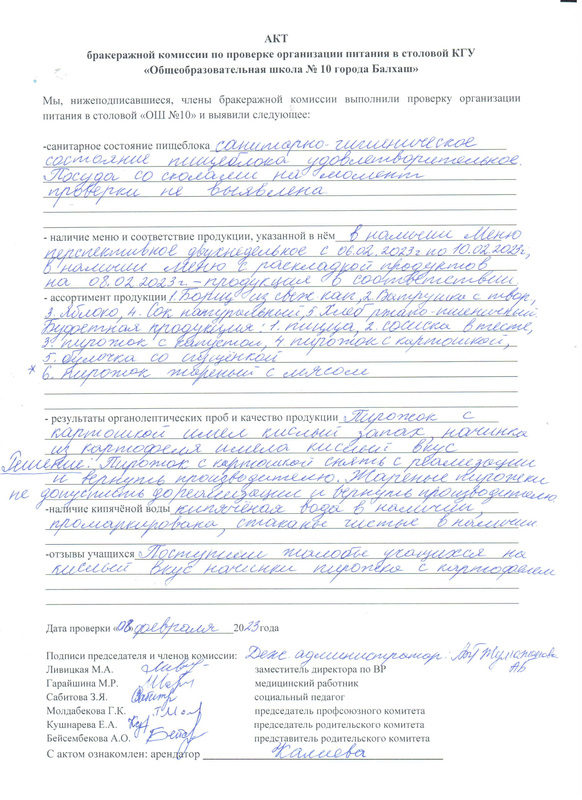 АКТ
бракеражной комиссии по проверке организации питания в столовой КГУ
«Общеобразовательная школа № 10 города Балхаш»
Мы, нижеподписавшиеся, члены бракеражной комиссии выполнили проверку организации
питания в столовой «ОШ №10» и выявили следующее:
-санитарное состояние пищеблока санитарно-гигиеническое
состояние пищеблока удовлетворительное.
Посуда со сколами на момент
проверки не выявлена
- наличие меню и соответствие продукции, указанной в нём в наличии Меню
перспективное двухнедельное с 06.02.2023г по 10.02.2023г,
в наличии меню с раскладкой продуктов
на 08.02.2023г. - продукция в соответствии
- ассортимент продукции 1. Борщ из свеж кап, 2. Ватрушка с твор,
3. Яблоко, 4. Сок натуральный, 5 Хлеб ржано-пшеничный.
Буфетная продукция: 1. пицца, 2 сосиска в тесте,
3. пирожок с капустой, 4 пирожок с картошкой,
5. булочка со сгущёнкой
* 6. Пирожок жареный с мясом
- результаты органолептических проб и качество продукции Пирожок с
картошкой имел кислый запах, начинка
из картофеля имела кислый вкус
Решение: Пирожок с картошкой снять с реализации
и вернуть производителю. Жареные пирожки
не допустить до реализации и вернуть производителю
-наличие кипячёной воды кипячёная вода в наличии,
промаркирована, стаканы чистые в наличии
-отзывы учащихся Поступили жалобы учащихся на
кислый вкус начинки пирожка с картофелем
Дата проверки «08» февраля 2023 года
Подписи председателя и членов комиссии: Деж. администратор:
Ливицкая М.А. заместитель директора по ВР
Гарайшина М.Р. медицинский работник
Сабитова З.Я. социальный педагог
Молдабекова Г.К. председатель профсоюзного комитета
Кушнарева Е.А. председатель родительского комитета
Бейсембекова А.О. представитель родительского комитета
С актом ознакомлен: арендатор Калиева